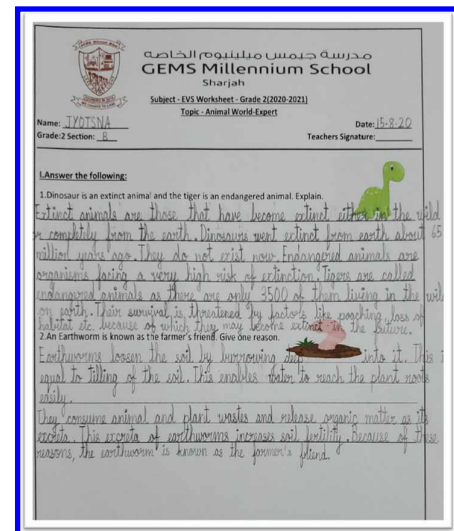 مدرسة جيمس ميلينيوم الخاصة
GEMS Millennium School
Sharjah
Subject - EVS Worksheet - Grade 2(2020-2021)
Topic - Animal World-Expert
Name: JYOTSNA Date: 15-8-20
Grade:2 Section: B Teachers Signature:
I.Answer the following:
1.Dinosaur is an extinct animal and the tiger is an endangered animal. Explain.
Extinct animals are those that have become extinct either in the wild
or completly from the earth. Dinosaurs went extinct from earth about 65
million years ago. They do not exist now. Endangered animals are
organisms facing a very high risk of extinction. Tigers are called
endangered animals as there are only 3500 of them living in the wild
on earth. Their survival is threatened by factors like poaching, loss of
habitat etc. because of which they may become extinct the future.
2.An Earthworm is known as the farmer's friend. Give one reason.
Earthworms loosen the soil by burrowing deep into it. This
equal to tilling of the soil. This enables water to reach the plant roots
easily.
They consume animal and plant wastes and release organic matter as its
excreta. This excreta of earthworms increases soil fertility. Because of these
reasons, the earthworm is known as the farmer's friend.